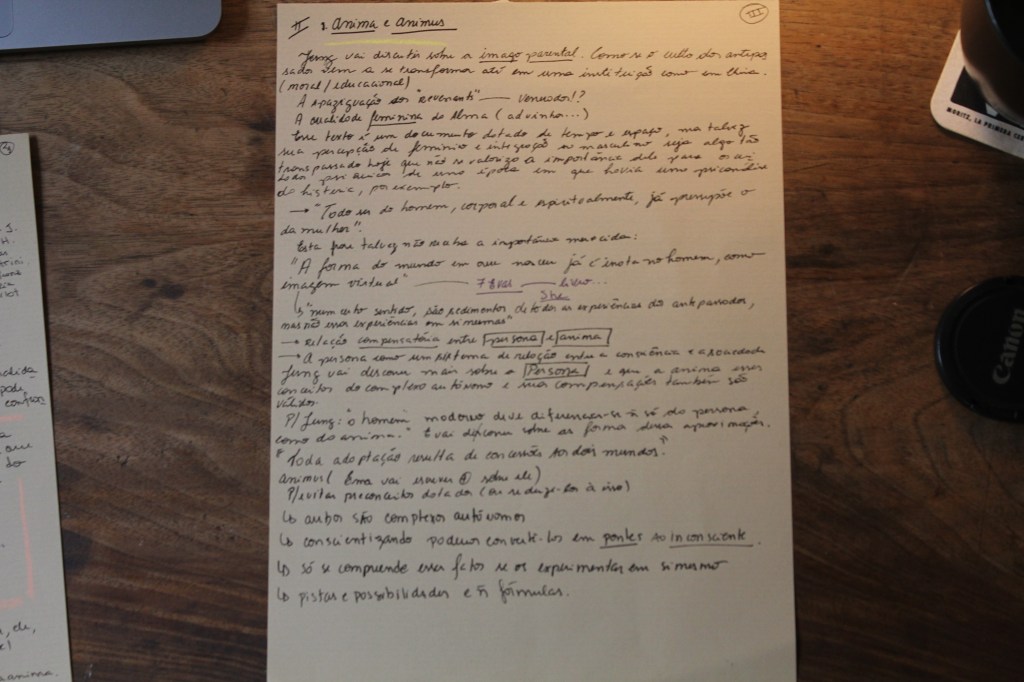 III
II 2. Anima e Animus
Jung vai discutir sobre a imago parental. Como se o culto dos antepas
sados vem a se transformar até em uma instituição como em China.
(moral/educacional)
A apaziguação dos "revenants" — venerados!?
A qualidade feminina da Alma (advinha...)
Esse texto é um documento datado de tempo e espaço, mas talvez
sua percepção de feminino e integração ao masculino seja algo tão
transpassado hoje que não se valoriza a importância dele para o
de uma época em que havia uma
da histeria, por exemplo.
→ "Todo ser do homem, corporal e espiritualmente, já pressupõe o
da mulher".
Esta frase talvez não receba a importância merecida:
"A forma do mundo em que nasceu já é inata no homem, como
imagem virtual" —
↳ "num certo sentido, são sedimentos de todas as experiências dos antepassados,
mas não essas experiências em si mesmas"
→ relação compensatória entre persona e anima
→ A persona como um sistema de relação entre a consciência e a sociedade
Jung vai discorrer mais sobre a Persona e que, a anima esses
conceitos do complexo autônomo e suas compensações também são
válidos.
P/ Jung: "o homem moderno deve diferenciar-se ñ só da persona
como da anima." E vai discorrer sobre as formas dessas aproximações.
"Toda adaptação resulta de concessões aos dois mundos."
animus (Emma vai escrever sobre ele)
P/ evitar preconceitos datados (ou reduzi-los à isso)
↳ ambos são complexos autônomos
↳ conscientizando podemos convertê-los em pontes ao inconsciente.
↳ só se compreende esses fatos se os experimentar em si mesmo
↳ pistas e possibilidades e ñ fórmulas.
MORITZ, LA PRIMERA
Canon